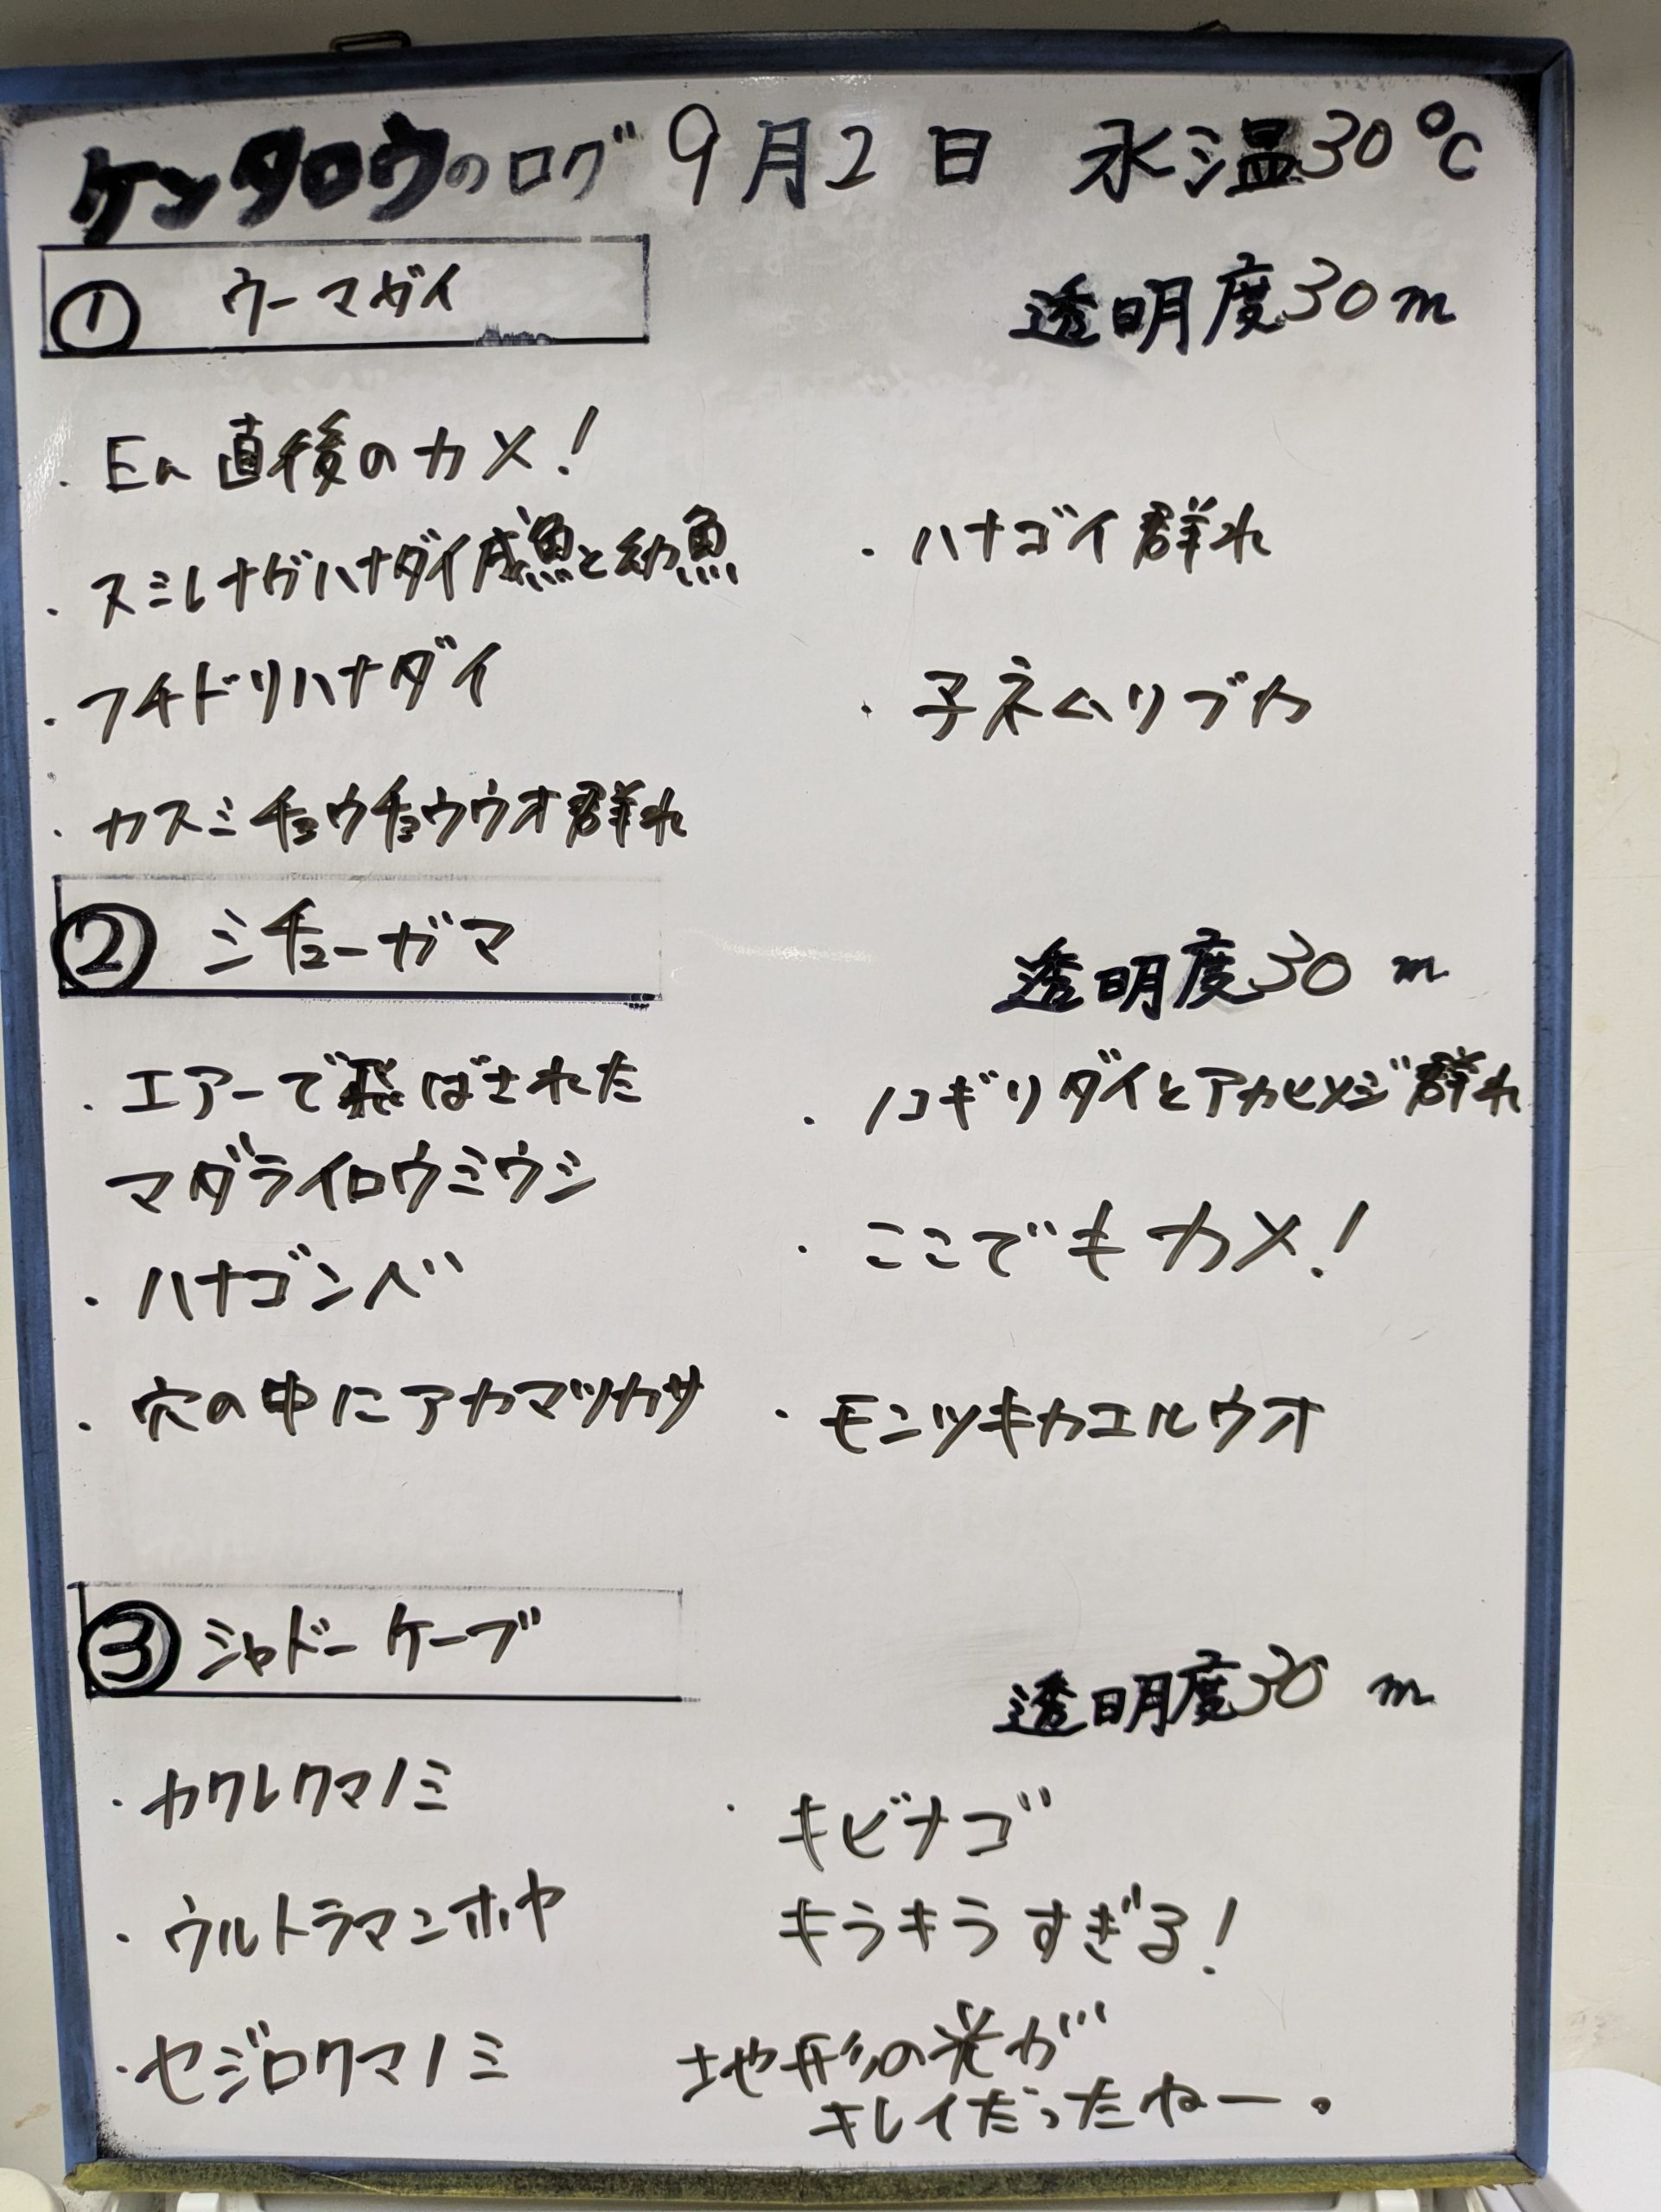 ケンタロウのログ 9月2日 水温30℃
① ウーマガイ
透明度30m
・En直後のカメ!
・スミレナガハナダイ成魚と幼魚
・フチドリハナダイ
・カスミチョウチョウウオ群れ
・ハナゴイ群れ
・子ネムリブカ
② ミチューガマ
透明度30m
・エアーで飛ばされた
マダライロウミウシ
・ハナゴンベ
・穴の中にアカマツカサ
・ノコギリダイとアカヒメジ群れ
・ここでもカメ!
・モンツキカエルウオ
③ シャドーケーブ
透明度30m
・カクレクマノミ
・ウルトラマンホヤ
・セジロクマノミ
・キビナゴ
キラキラすぎる!
地形の光が
キレイだったねー。